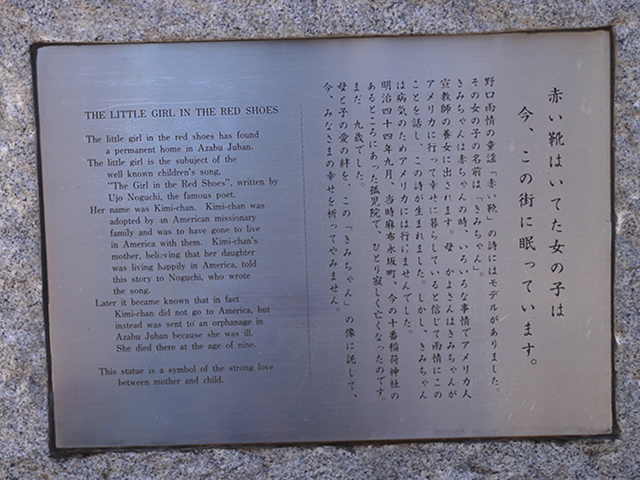 THE LITTLE GIRL IN THE RED SHOES
The little girl in the red shoes has found
a permanent home in Azabu Juban.
The little girl is the subuject of the
well known children's song,
"The Girl in the Red Shoes", written by
Ujo Noguchi, the famous poet.
Her name was Kimi-chan. Kimi-chan was
adopted by an American missionary
family and was to have gone to live
in America with them. Kimi-chan's
mother, believing that her daughter
was living happily in America, told
this story to Noguchi, who wrote
the song.
Later it became known that in fact
Kimi-chan did not go to America, but
instead was sent to an orphanage in
Azabu Juban because she was ill.
She died there at the age of nine.
This statue is a symbol of the strong love
between mother and child.
赤い靴はいてた女の子は
今、この街に眠っています。
野口雨情の童謡「赤い靴」の詩にはモデルがありました。
その女の子の名前は「きみちゃん」。
きみちゃんは赤ちゃんの時、いろいろな事情でアメリカ人
宣教師の養女に出されます。母、かよさんはきみちゃんが
アメリカに行って幸せに暮らしていると信じて雨情にこの
ことを話し、この詩が生まれました。しかし、きみちゃん
は病気のためアメリカには行けませんでした。
明治四十四年九月、当時麻布永坂町、今の十番稲荷神社の
あるところにあった孤児院で、ひとり寂しく亡くなったのです。
まだ、九歳でした。
母と子の愛の絆を、この「きみちゃん」の像に託して、
今、みなさまの幸せを祈ってやみません。